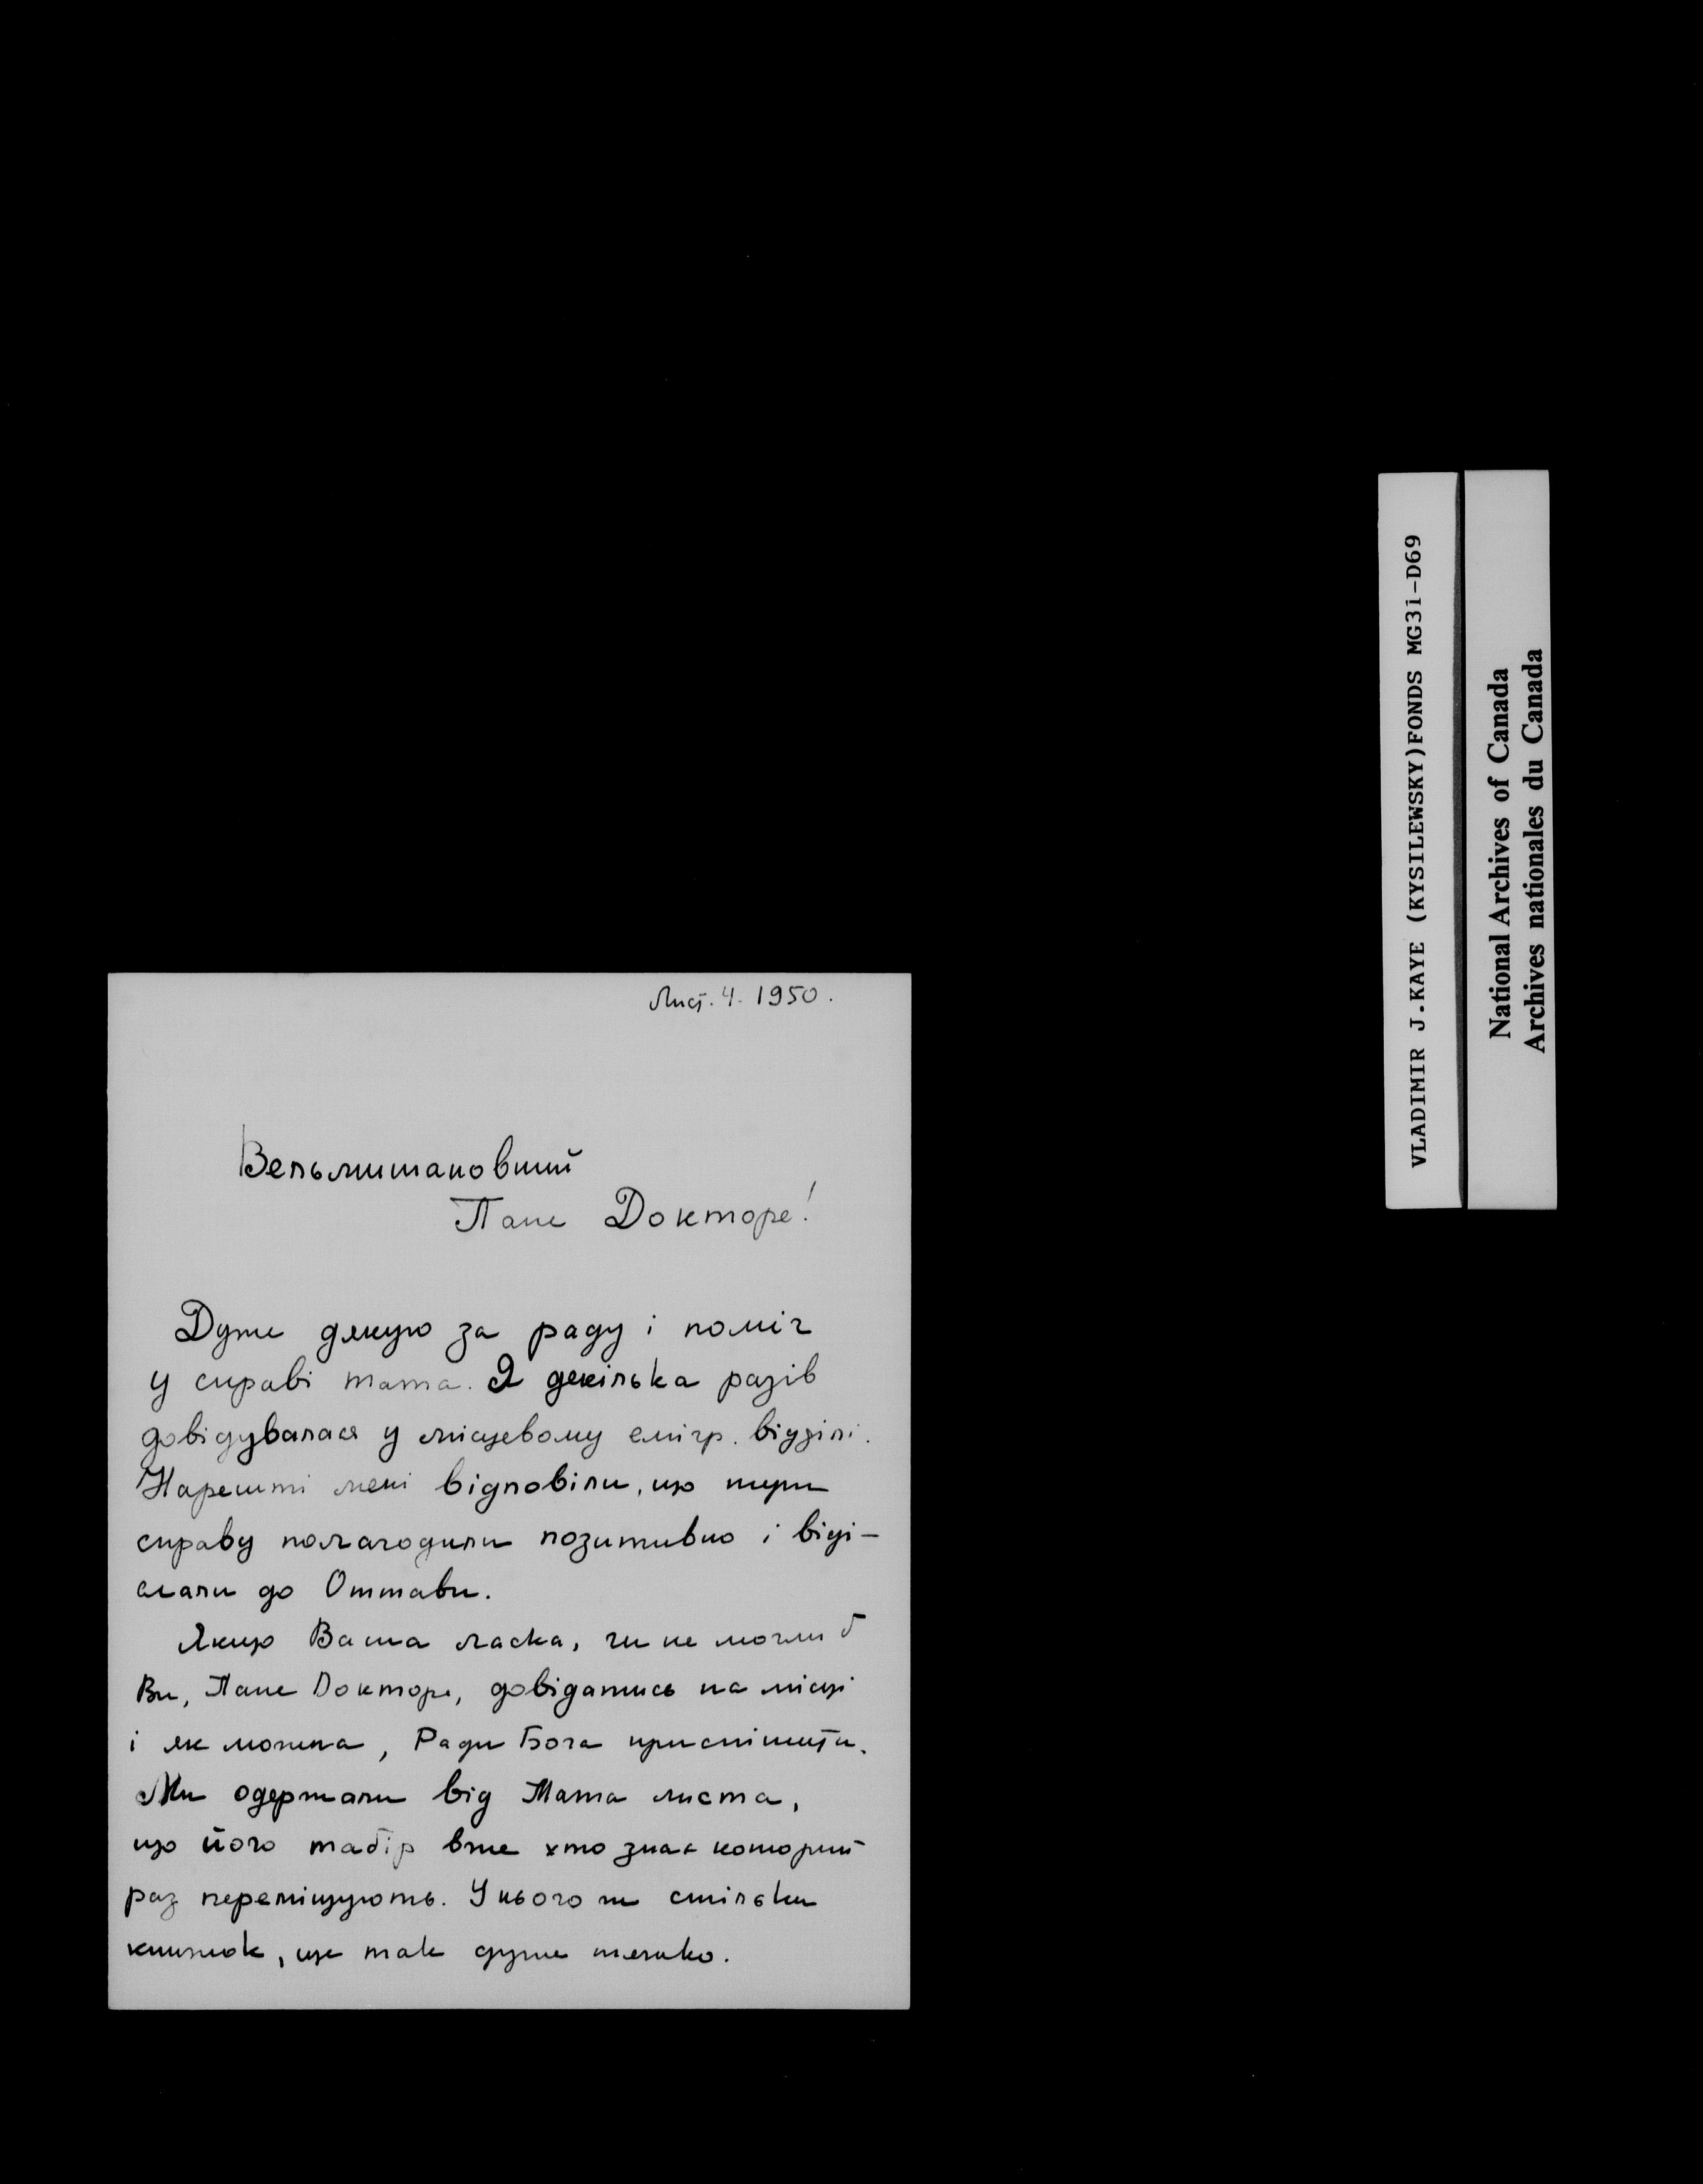 Лист. 4. 1950.
Вельмишановний
Пане Докторе!
Дуже дякую за раду і поміч
у справі тата. Я декілька разів
довідувалася у місцевому емігр. відділі.
Нарешті мені відповіли, що
справу полагодили позитивно і віді-
слали до Оттави.
Якщо Ваша ласка, чи не могли б
Ви, Пане Докторе, довідатись на місці
і як можна, Ради Бога приспішити.
Ми одержали від Тата листа,
що його табір вже хто знає которий
раз переміщують. У нього ж стільки
книжок, це так дуже тяжко.
VLADIMIR J.KAYE (KYSILEWSKY)FONDS MG31-D69
National Archives of Canada
Archives nationales du Canada